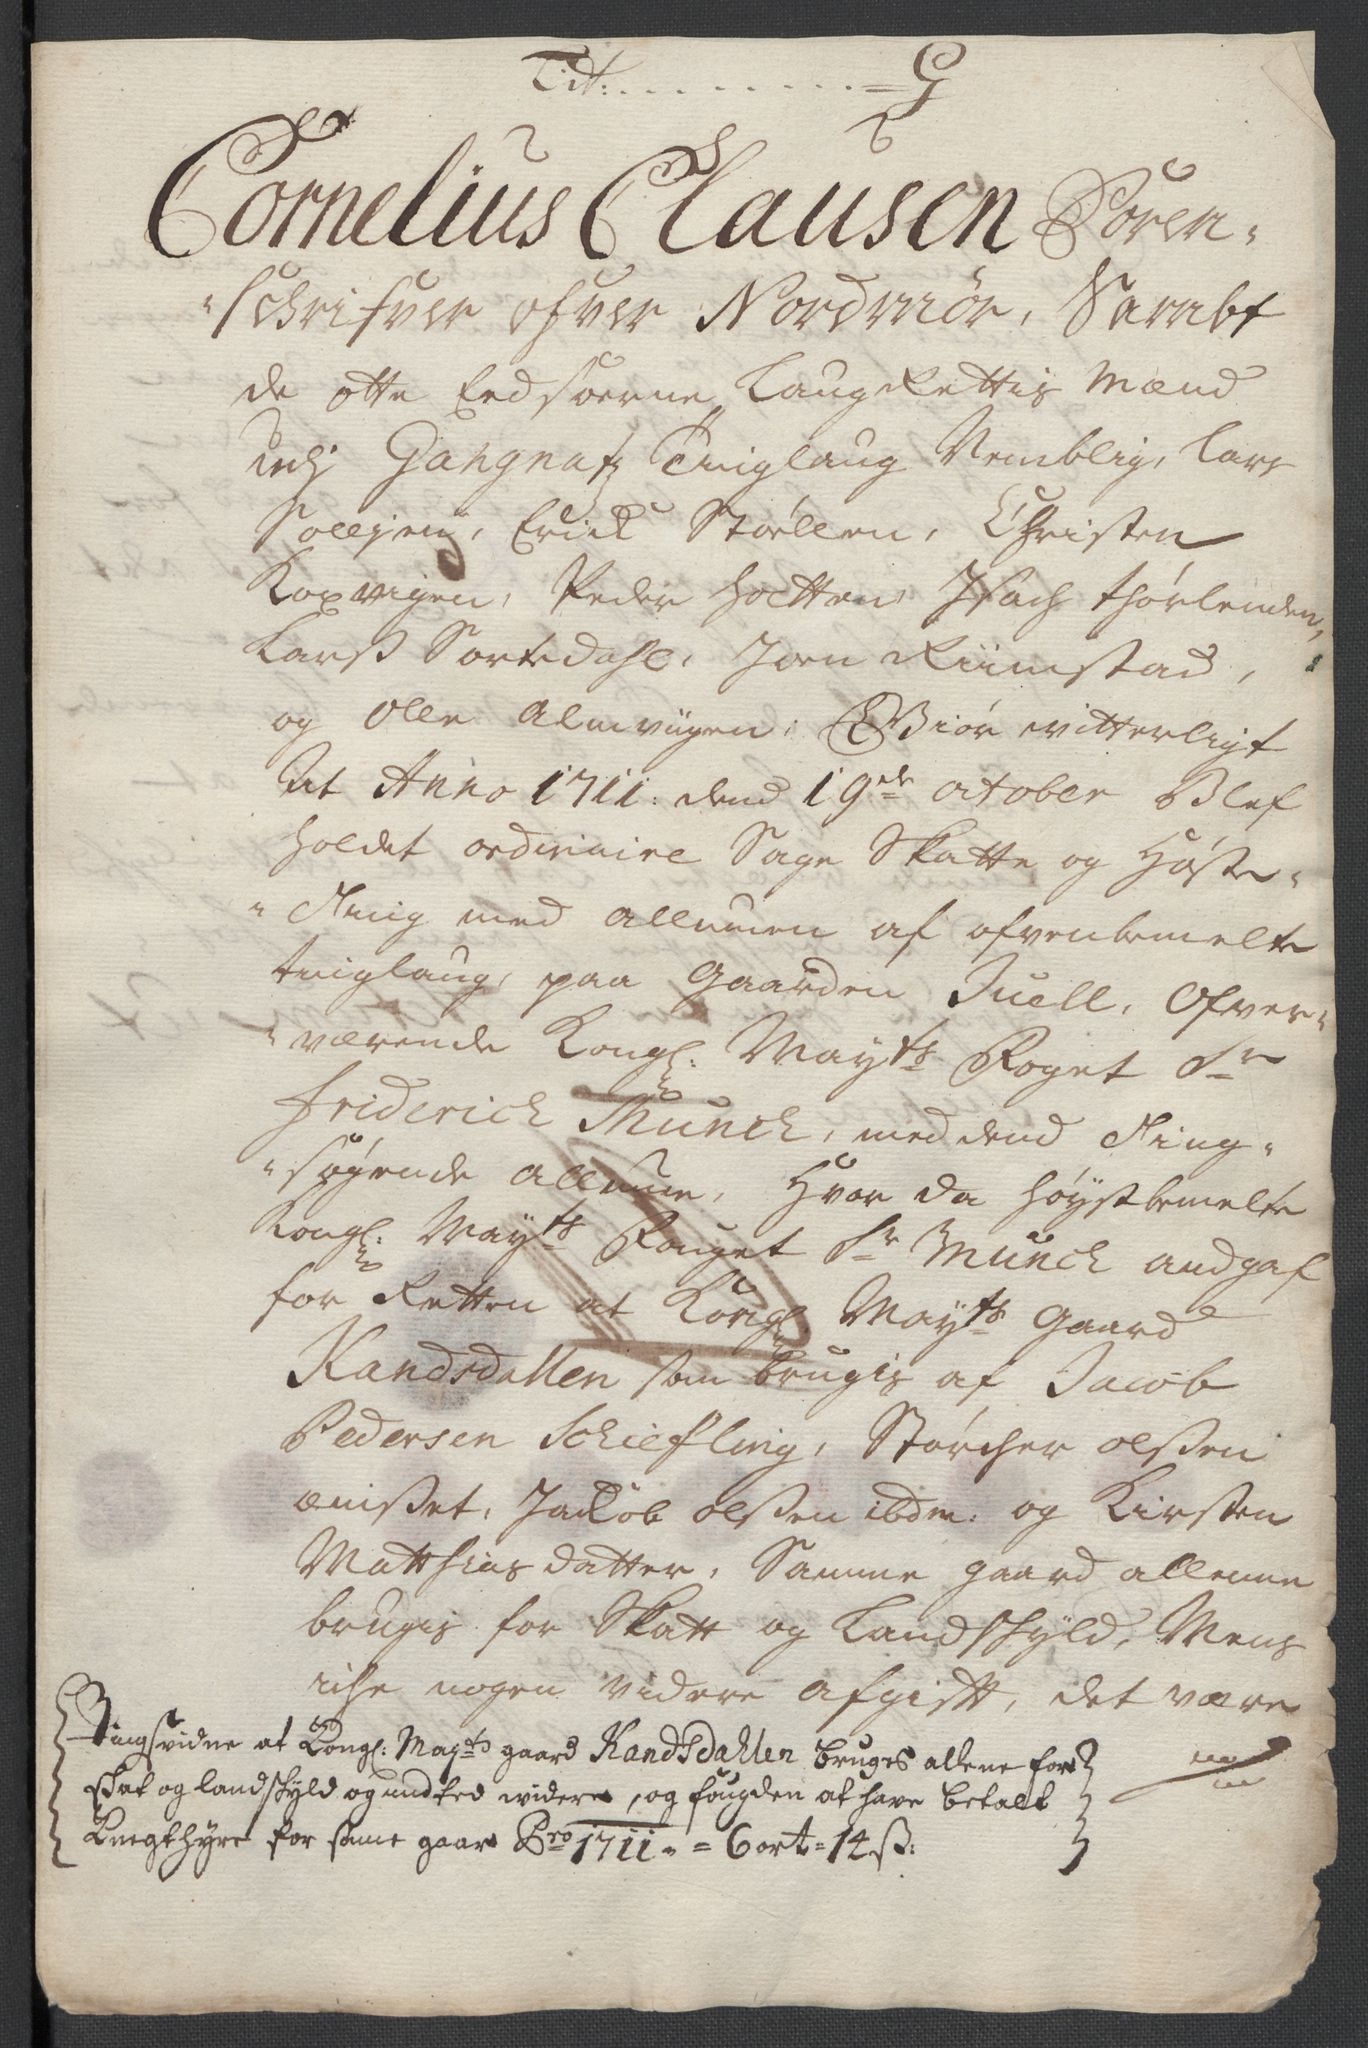 Lit: . . . . . . . . . . = G
Cornelius Clausen Soren-
-schrifver ofver Nordmör, Sambt
de otte Eedsoerne LaugRettis Mænd
udj Gangnafs Tinglaug Nemblig, Lars
Solljem, Erick Stöellen, Christen
Koxvigen, Peder hoetten, Isach thörlenden,
Larss Sortedahl, Joen Riimstad,
og Olle Almvigen, Giör witterligt
At Anno 1711: dend 19de october Blef
holdet ordinaire Sage Skatte og Höste-
-Ting med allmuen af ofvenbemelte
tinglaug, paa Gaarden Juell, Ofver-
-værende Kongl: Mayts Foget Sr
Friderich Munch, med dend Ting-
-søgende allmue, Hvor da höystbemelte
Kongl: Mayts Fouget Sr Munch andgaf
for Retten at Kongl: Mayts Gaard
Randsdallen som brugis af Jacob
Pedersen Schiefling, Störcher olssen
ænisset, Jackob olssen ibdm: og Kirsten
Matthias datter, Samme gaard allenne
brugis for Skatt og Landschyld, Mens
iche nogen videre afgift, det være
Tingsvidne at Kongl: Mayts gaard Randsdahlen bruges allene for
skat og landschyld og intted widere, og fougden at have betalt
Knegthyre for same gaard Pro 1711 - = 6 ort = 14 ss: